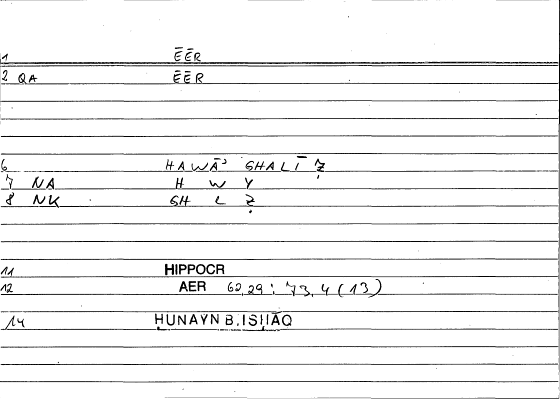 1 ĒĒR
2 QA ĒĒR
6 HAWĀʾ GHALĪẒ
7 NA H W Y
8 NK GH L Ẓ
11 HIPPOCR
12 AER 60,29 : 73,4 (13)
14 ḤUNAYN B. ISḤĀQ